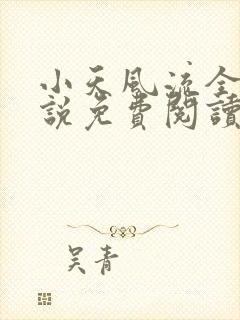 小天風流全
說免費閱讀
吴青